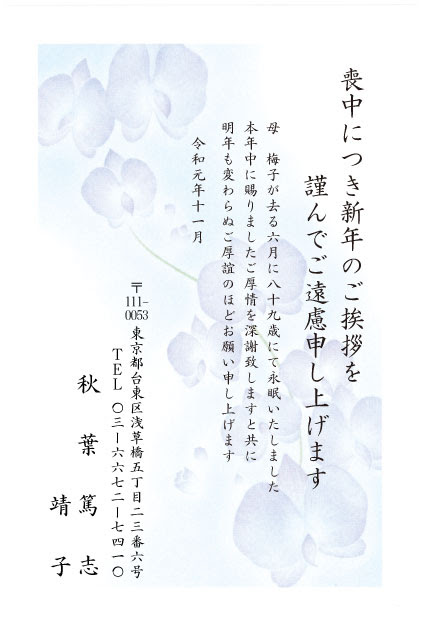 喪中につき新年のご挨拶を
謹んでご遠慮申し上げます
母　梅子が去る六月に八十九歳にて永眠いたしました
本年中に賜りましたご厚情を深謝致しますと共に
明年も変わらぬご厚誼のほどお願い申し上げます
令和元年十一月
〒111-0053 東京都台東区浅草橋五丁目二三番六号
TEL 〇三ー六六七二ー七四一〇
秋葉篤志
靖子